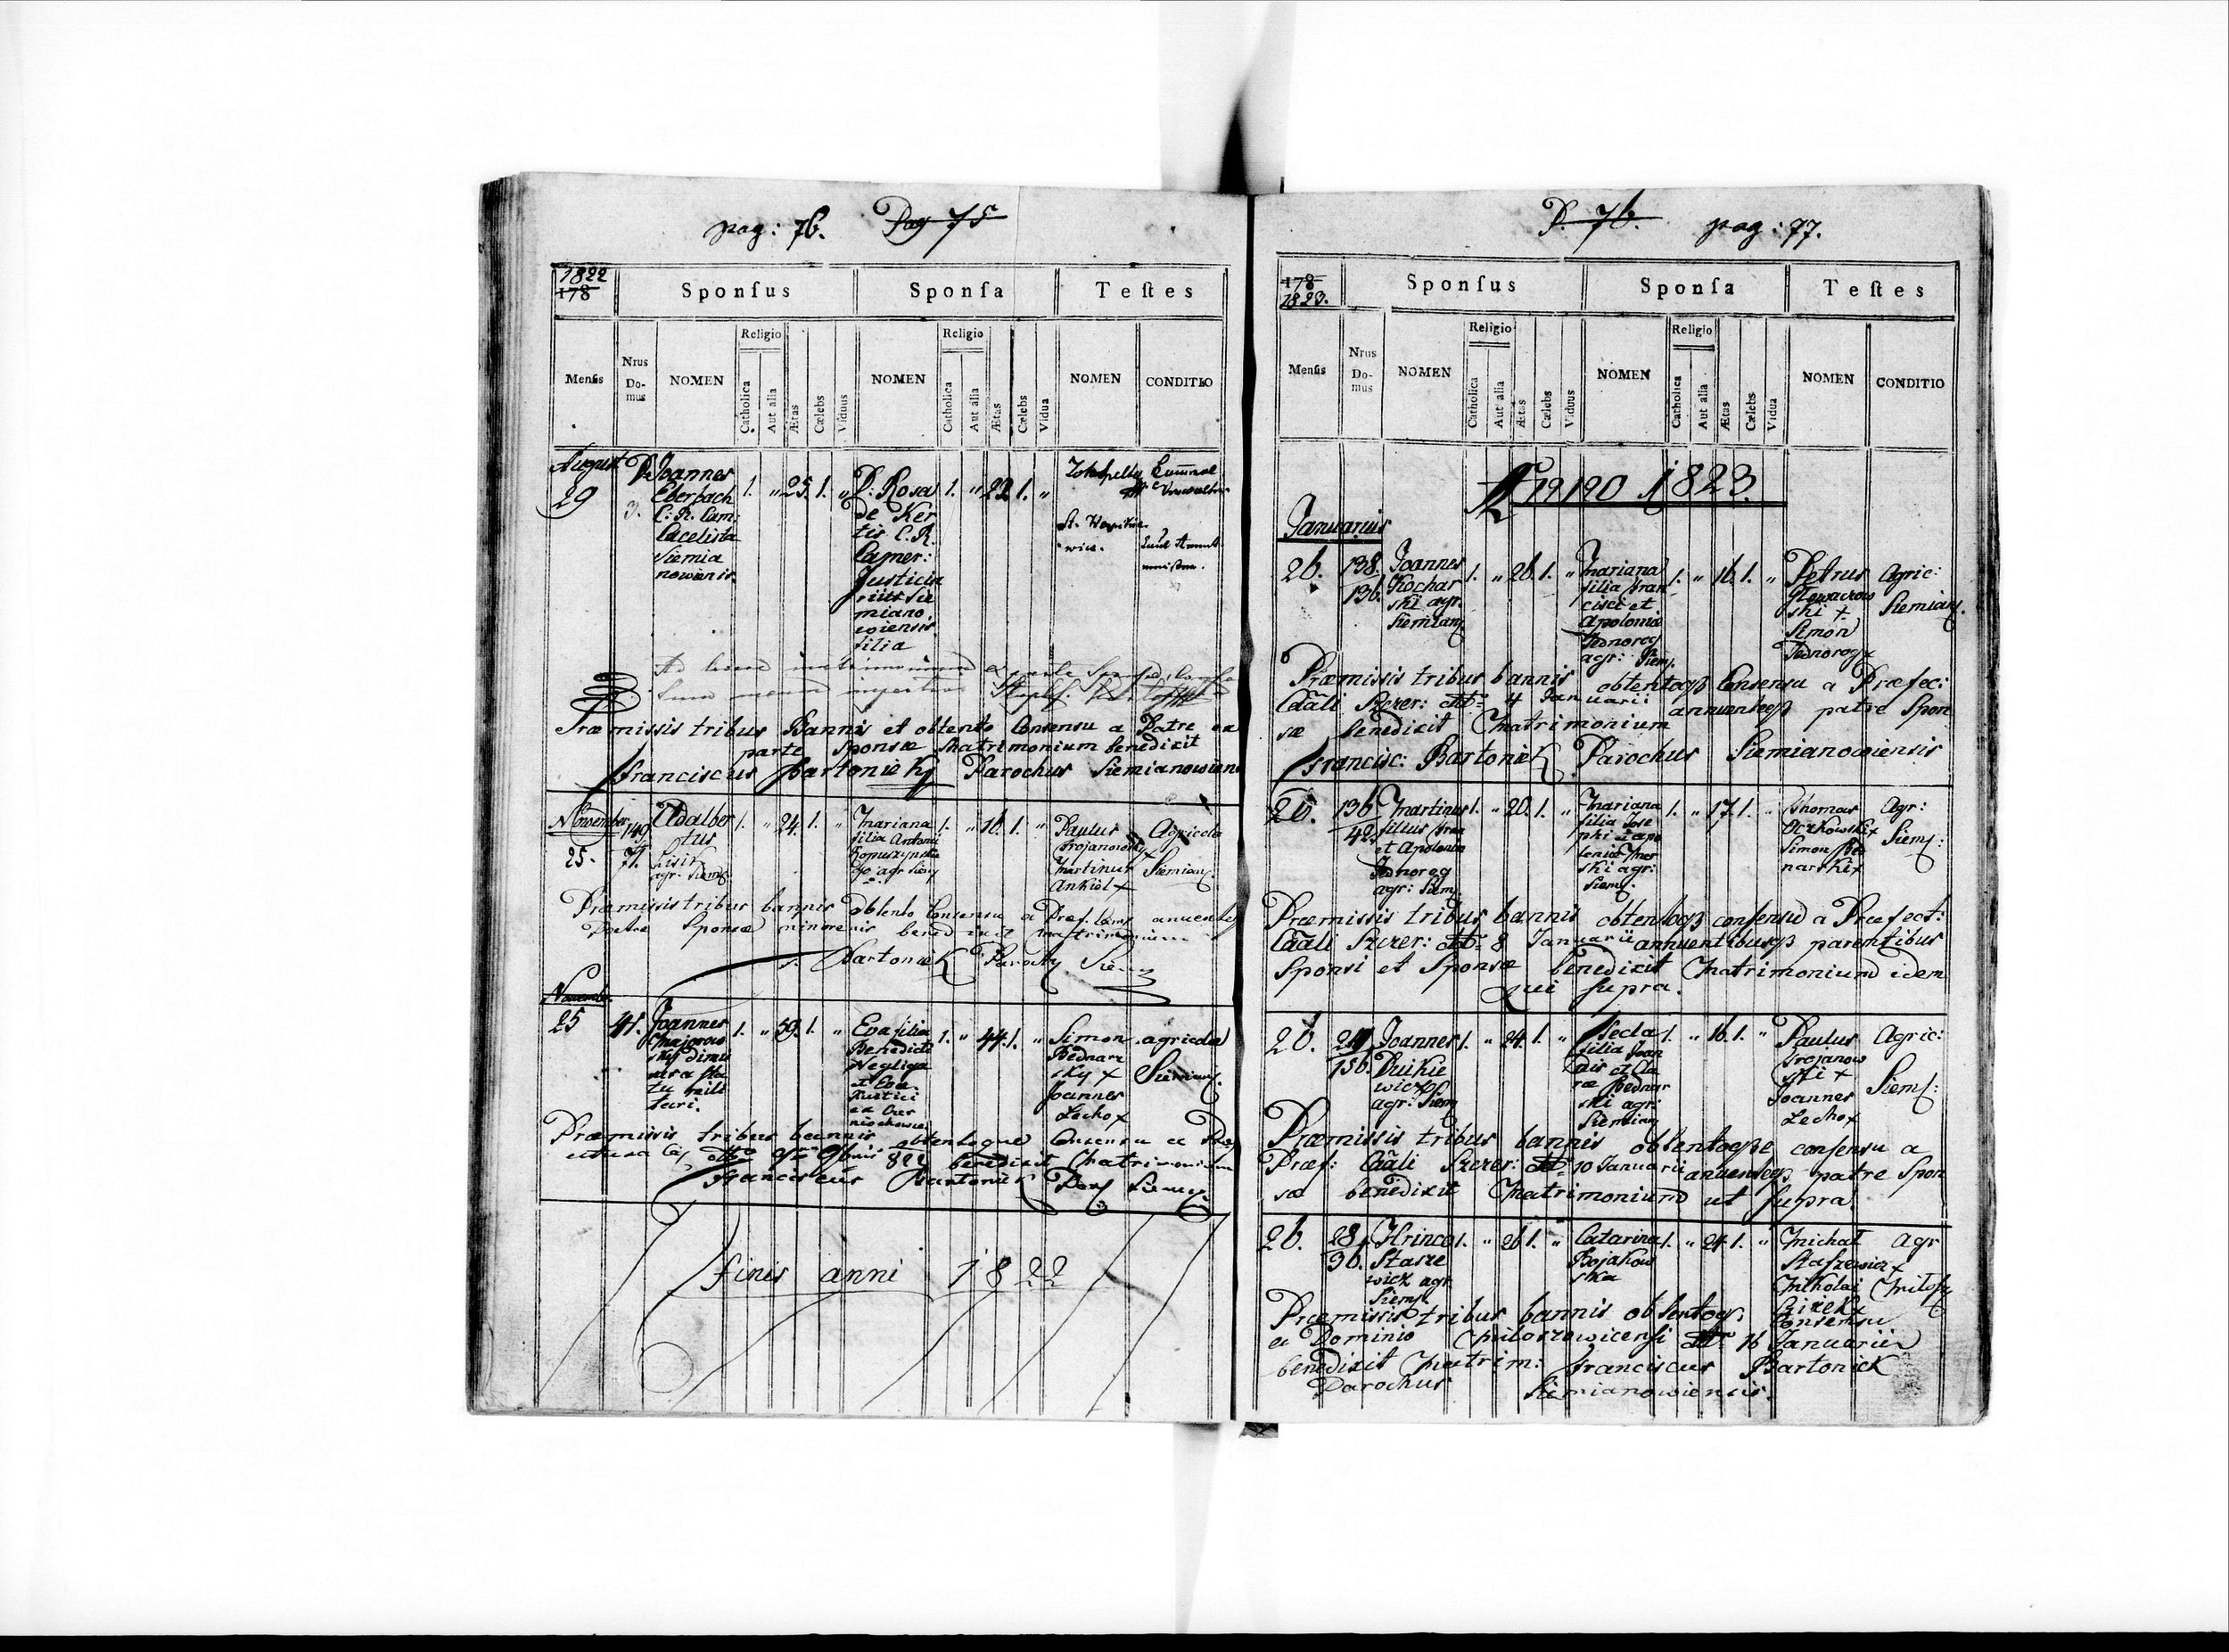 pag: 76. Pag 75
1822
178
Sponſus Sponſa Teſtes
Menſis Nrus Domus NOMEN Religio Catholica Aut alia Ætas Cælebs Viduus NOMEN Religio Catholica Aut alia Ætas Cælebs Vidua NOMEN CONDITIO
August
29
3.
Joannes
Eberbach
C: R. Cam:
Siemia
nowiensis
1. " 25. 1. "
D: Rosa
de Ker
tis C. R.
Camer:
Justicia
rius Sie
miano
wiensis
filia
1. " 22. 1. "
Præmissis tribus Bannis et obtento Consensu a Patre ex
parte Sponsæ Matrimonium benedixit
Franciscus Bartoniek Parochus Siemianowiens
November
25.
149
71.
Adalber
tus
Lisik
agr: Siem
1. " 24. 1. "
Mariana
filia Antonii
agr Siem
1. " 16. 1. "
Paulus
Trojanowsky
Martinus
Ankiel +
Agricola
Siemian
Præmissis tribus bannis obtento Consensu a Præf. anuente
Patre Sponsæ minorenis benedixit matrimonium
F. Bartoniek Paroch Siem
Novemb.
25
41.
Joannes
Majerow
sky dimis
sus a sta
tu mili
tari.
1. " 59. 1. "
Eva filia
Benedicti
Negliga
et Eva
Rustici
1. " 44. 1. "
Simon
Bednar
sky +
Joannes
Lecho +
agricola
Siemian
Præmissis tribus bannis obtentoque Consensu a
822 benedixit Matrimonium
Franciscus Bartoniek Par Siem
finis anni 1822
P. 76. pag: 77.
178
1823.
Sponſus Sponſa Teſtes
Menſis Nrus Domus NOMEN Religio Catholica Aut alia Ætas Cælebs Viduus NOMEN Religio Catholica Aut alia Ætas Cælebs Vidua NOMEN CONDITIO
Anno 1823.
Januarius
26.
138.
136.
Joannes
Kochar
ski agr.
Siemian
1. " 26. 1. "
Mariana
filia Fran
cisci et
Apoloniæ
Jednorog
agr: Siem.
1. " 16. 1. "
Petrus
Glowacrow
ski +
Simon
Jednorog x
Agric:
Siemian.
Præmissis tribus bannis obtentoq3 Consensu a Præfec:
Caãli Szczer: 4 Januarii annuenteq3 patre Spon
sæ benedixit Matrimonium
Francisc: Bartoniek Parochus Siemianowiensis
26.
136
42.
Martinus
filius Fran
et Apoloniæ
Jednorog
agr: Siem.
1. " 20. 1. "
Mariana
filia Jose
phi et Apo
ski agr:
Siem.
1. " 17. 1. "
Thomas
Oczkowski x
Simon Bed
narski x
Agr:
Siem:
Præmissis tribus bannis obtentoq3 consensu a Præfect:
Caãli Szczer: 8 Januarii annuentibusq3 parentibus
Sponsi et Sponsæ benedixit Matrimonium idem
qui supra.
26.
136.
Joannes
wicz
agr: Siem
1. " 24. 1. "
Tecla
filia Joan
nis et Cla
ræ Bednar
ski agr:
Siemian
1. " 16. 1. "
Paulus
Trojanow
ski +
Joannes
Lecho x
Agric:
Siem:
Præmissis tribus bannis obtentoque consensu a
Præf: Caãli Szczer: 10 Januarii anuenteq3 patre Spon
sæ benedixit Matrimonium ut supra.
26.
28.
36.
Hrinco
Stasze
wicz agr
Siem.
1. " 26. 1. "
Catarina
Bojakow
ska
1. " 24. 1. "
Michał
Staszewicz x
Mikolai
Agr
Præmissis tribus bannis obtentoq: Consensu
a Dominio Miloszowicensi 16 Januarii
benedixit Matrim: Franciscus Bartoniek
Parochus Siemianowiensis.